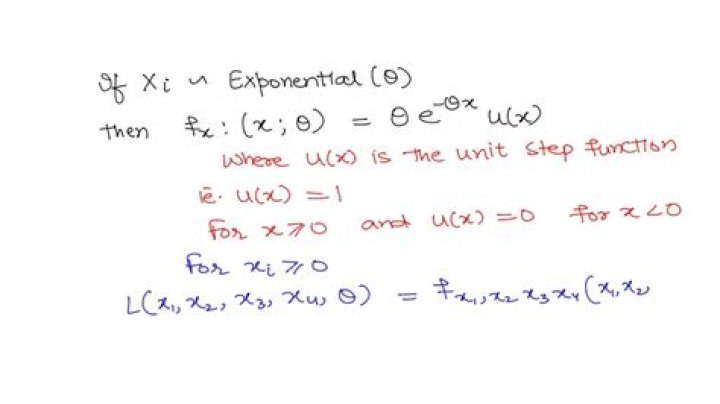 If Xi ~ Exponential (θ)
then fx: (x; θ) = θ e^-θx u(x)
where u(x) is the unit step function
ie. u(x) = 1
for x ≥ 0 and u(x) = 0 for x < 0
for xi ≥ 0
L(x1, x2, x3, x4, θ) = fx1, x2 x3 x4 (x1, x2,